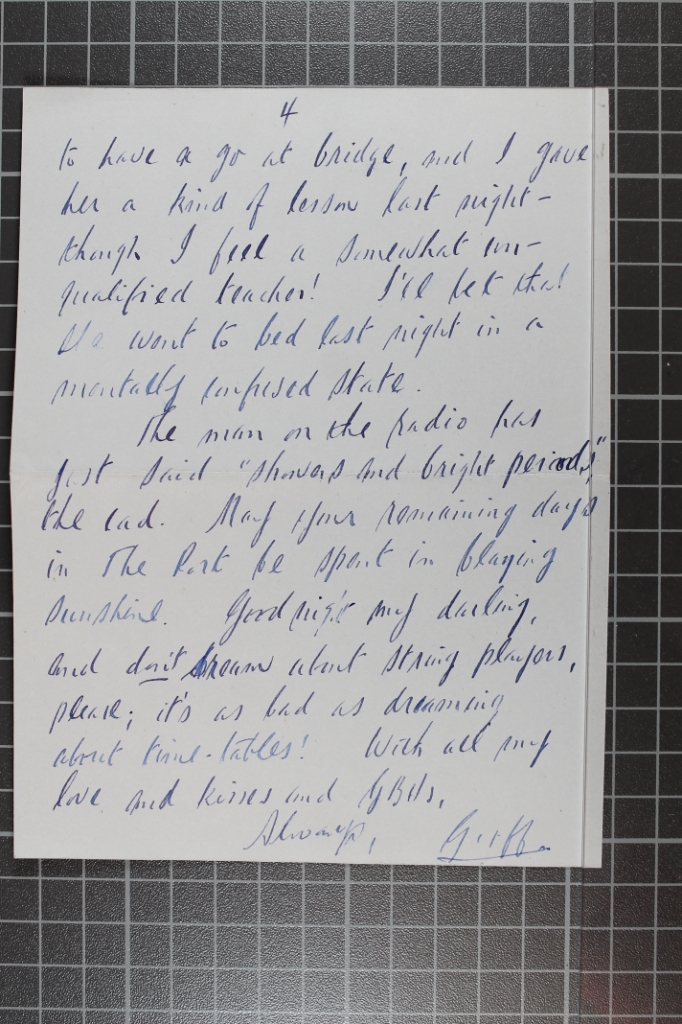 4
to have a go at bridge, and I gave
her a kind of lesson last night –
though I feel a somewhat un-
qualified teacher! I'll bet that
she went to bed last night in a
mentally confused state.
The man on the radio has
just said "showers and bright periods,"
the cad. May your remaining days
in The Park be spent in blazing
sunshine. Goodnight my darling,
and don't dream about string players,
please; it's as bad as dreaming
about time-tables! With all my
love and kisses and GBHs,
Always, Griff.